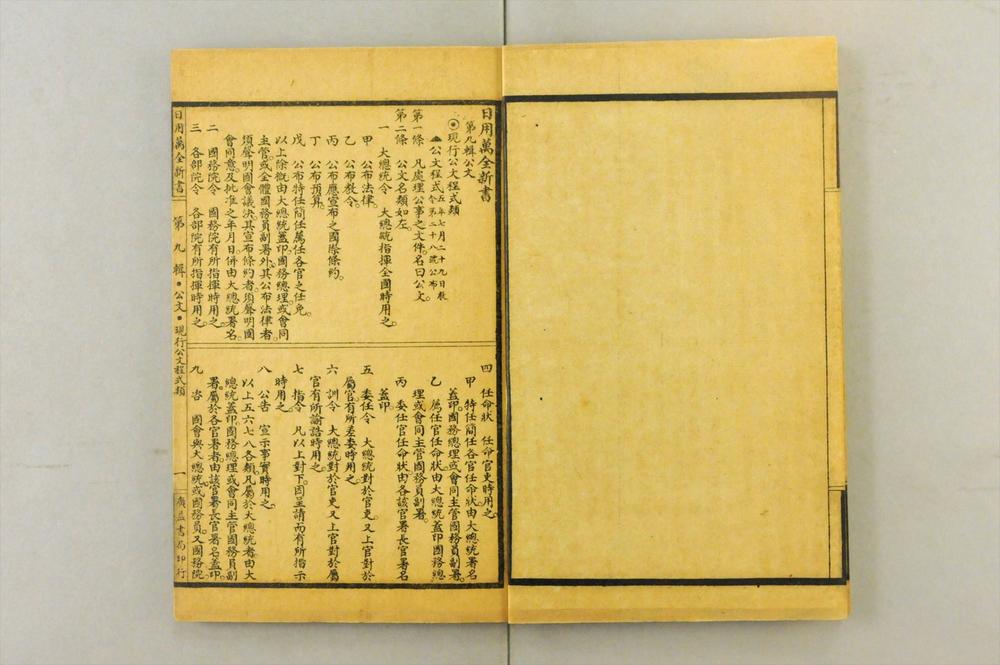 日用萬全新書
第九輯公文
◉現行公文程式類
▲公文程式 五年七月二十九日教
令第二十八號公布
第一條　凡處理公事之文件。名曰公文。
第二條　公文名類如左。
一　大總統令　大總統指揮全國時用之。
甲　公布法律。
乙　公布教令。
丙　公布應宣布之國際條約。
丁　公布預算。
戊　公布特任簡任薦任各官之任免。
以上除概由大總統蓋印。國務總理。或會同
主管。或全體國務員副署外。其公布法律者。
須聲明國會議決。其宣布條約者。須聲明國
會同意及批准之年月日。併由大總統署名。
二　國務院令　國務院有所指揮時用之。
三　各部院令　各部院有所指揮時用之。
四　任命狀　任命官吏時用之。
甲　特任簡任各官任命狀。由大總統署名
蓋印。國務總理或會同主管國務員副署。
乙　薦任官任命狀。由大總統蓋印國務總
理或會同主管國務員副署。
丙　委任官任命狀。由各該官署長官署名
蓋印
五　委任令　大總統對於官吏。又上官對於
屬官。有所差委時用之。
六　訓令　大總統對於官吏又上官對於屬
官有所諭誥時用之。
七　指令　凡以上對下。因呈請而有所指示
時用之。
八　公告　宣示事實時用之。
以上五六七八各類。凡屬於大總統者。由大
總統蓋印國務總理或會同主管國務員副
署。屬於各官署者。由該官署長官署名蓋印。
九　咨　國會與大總統。或國務員。又國務院
日用萬全新書　第九輯●公文●現行公文程式類　一　廣益書局印行